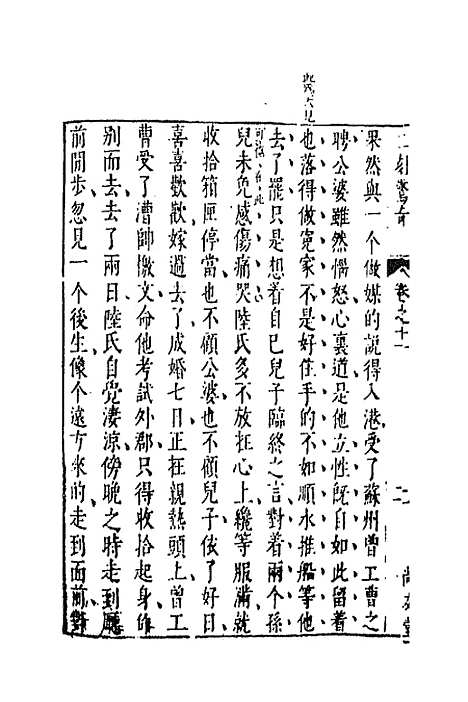 二刻驚奇
卷之十一
二
尚友堂
果然與一个做媒的說得入港受了蘇州曾工曹之
聘公婆雖然惱怒心裏道是他立性旣自如此留着
也落得做寃家不是好住手的不如順水推船等他
去了罷只是想着自已兒子臨終之言對着兩个孫
兒未免感傷痛哭陸氏多不放在心上纔等服滿就
收拾箱匣停當也不顧公婆也不顧兒子依了好日
喜喜歡歡嫁過去了成婚七日正在親熱頭上曾工
曹受了漕帥檄文命他考試外郡只得收拾起身作
別而去去了兩日陸氏自覺淒涼傍晚之時走到廳
前閒步忽見一个後生像个遠方來的走到面前對